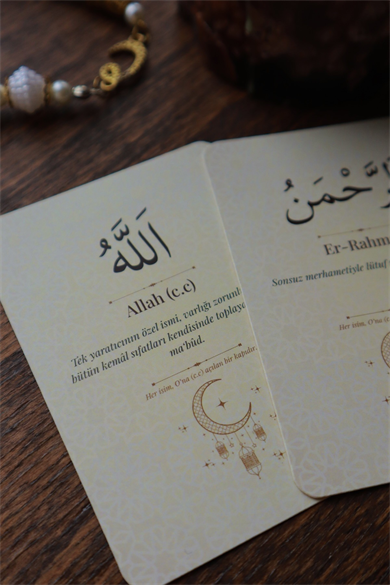 اللَّهُ
Allah (c.c)
Tek yaratıcının özel ismi, varlığı
bütün kemâl sıfatları kendisinde
ma'bûd.
Her isim, O'na (c.c) açılan bir kapıdır.
الرَّحْمَنُ
Sonsuz merhametiyle lütuf
Her isim, O'na